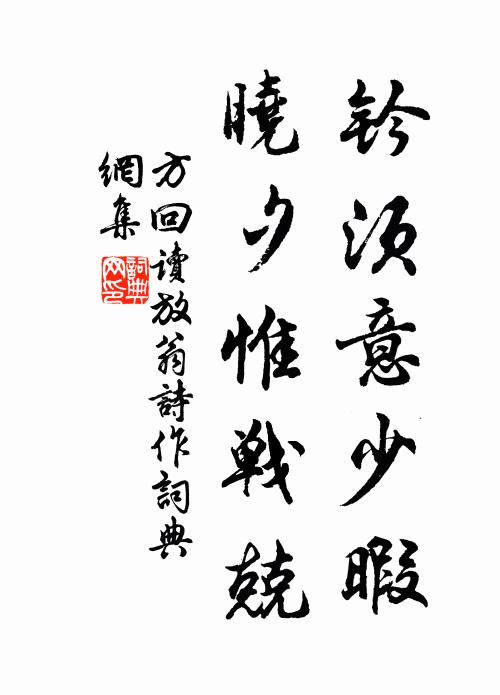 鈐須意少暇
曉夕惟戰兢
方回讀放翁詩作詞典
網集
詞典網印